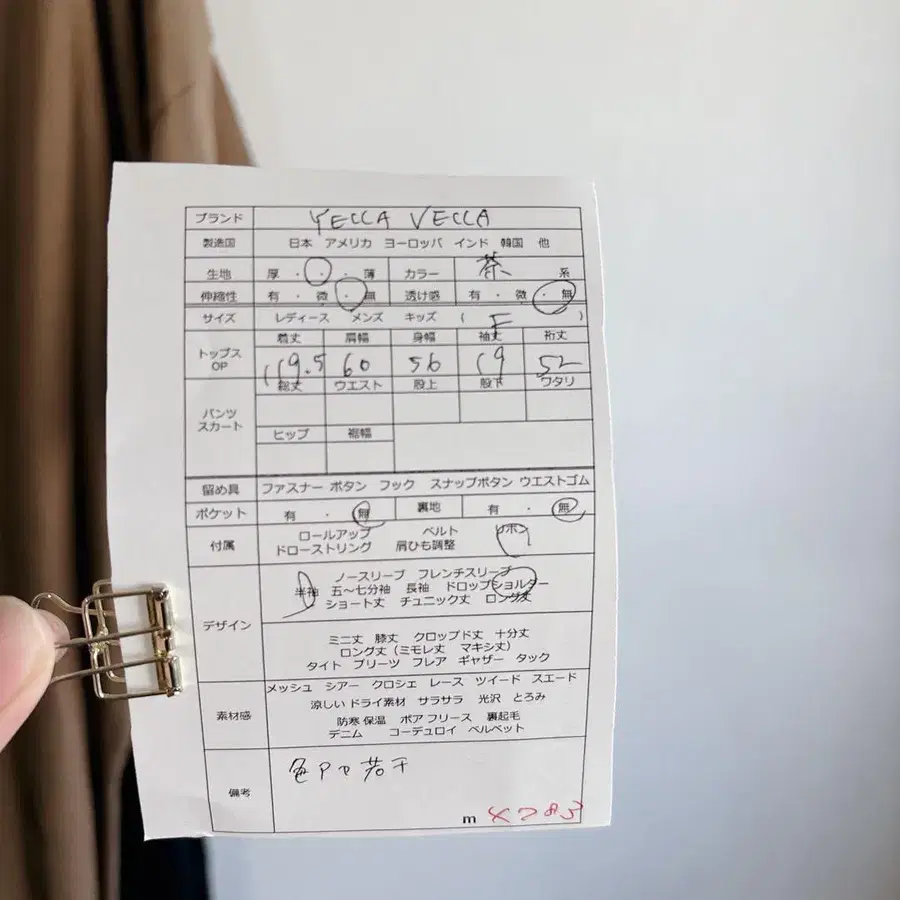 ブランド YECCA VECCA
製造国 日本 アメリカ ヨーロッパ インド 韓国 他
生地 厚・・・薄 カラー 茶 系
伸縮性 有・微・無 透け感 有・微・無
サイズ レディース メンズ キッズ ( F )
トップス OP
着丈 肩幅 身幅 袖丈 裄丈
119.5 60 56 19 52
パンツ スカート
総丈 ウエスト 股上 股下 ワタリ
ヒップ 裾幅
留め具 ファスナー ボタン フック スナップボタン ウエストゴム
ポケット 有・無 裏地 有・無
付属 ロールアップ ベルト リボン
ドローストリング 肩ひも調整
デザイン
ノースリーブ フレンチスリーブ
半袖 五〜七分袖 長袖 ドロップショルダー
ショート丈 チュニック丈 ロング丈
ミニ丈 膝丈 クロップド丈 十分丈
ロング丈(ミモレ丈 マキシ丈)
タイト プリーツ フレア ギャザー タック
素材感
メッシュ シアー クロシェ レース ツイード スエード
涼しい ドライ素材 サラサラ 光沢 とろみ
防寒 保温 ボア フリース 裏起毛
デニム コーデュロイ ベルベット
備考 色アセ若干
m